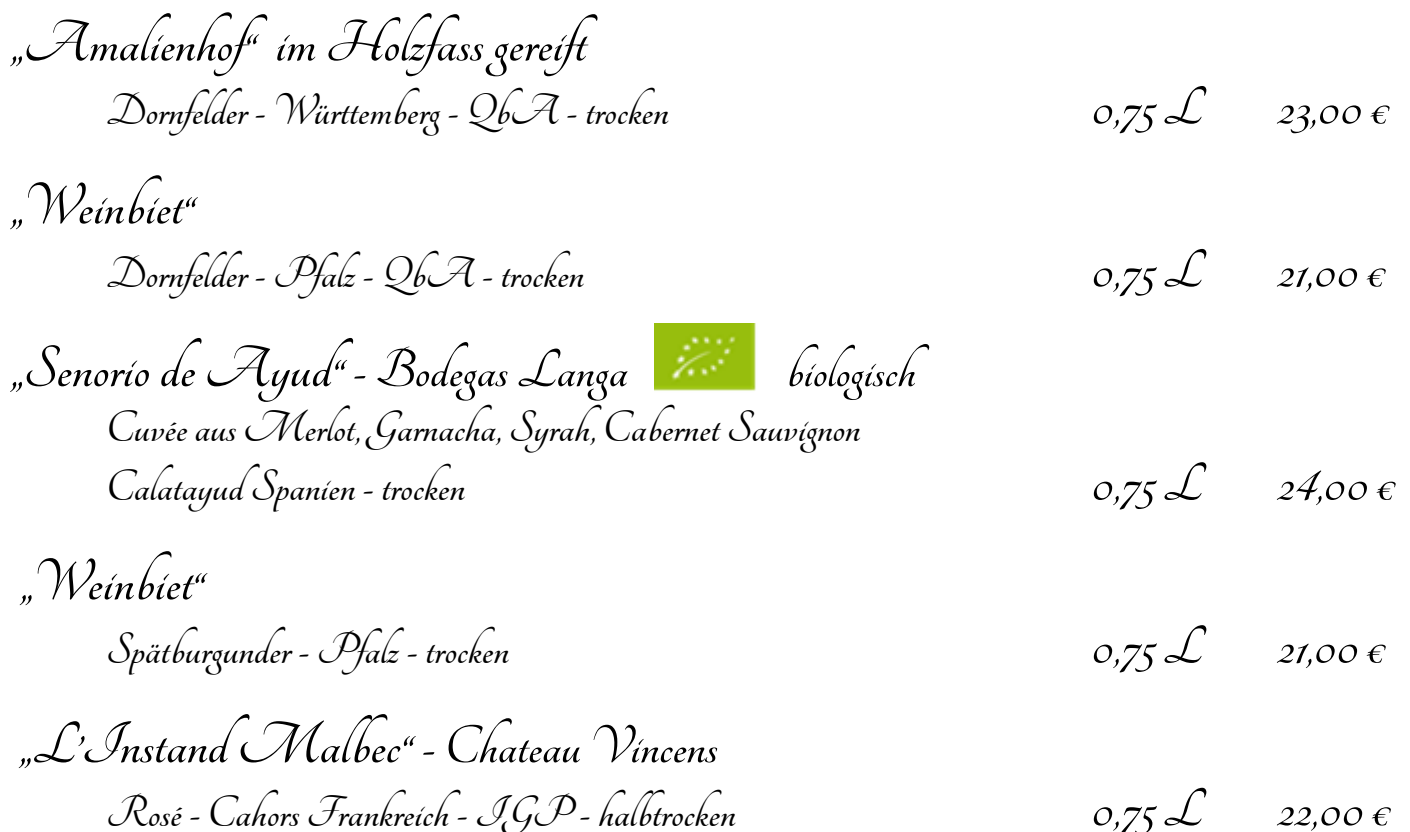 „Amalienhof“ im Holzfass gereift
Dornfelder - Württemberg - QbA - trocken 0,75 L 23,00 €
„Weinbiet“
Dornfelder - Pfalz - QbA - trocken 0,75 L 21,00 €
„Senorio de Ayud“ - Bodegas Langa biologisch
Cuvée aus Merlot, Garnacha, Syrah, Cabernet Sauvignon
Calatayud Spanien - trocken 0,75 L 24,00 €
„Weinbiet“
Spätburgunder - Pfalz - trocken 0,75 L 21,00 €
„L’Instand Malbec“ - Chateau Vincens
Rosé - Cahors Frankreich - IGP - halbtrocken 0,75 L 22,00 €